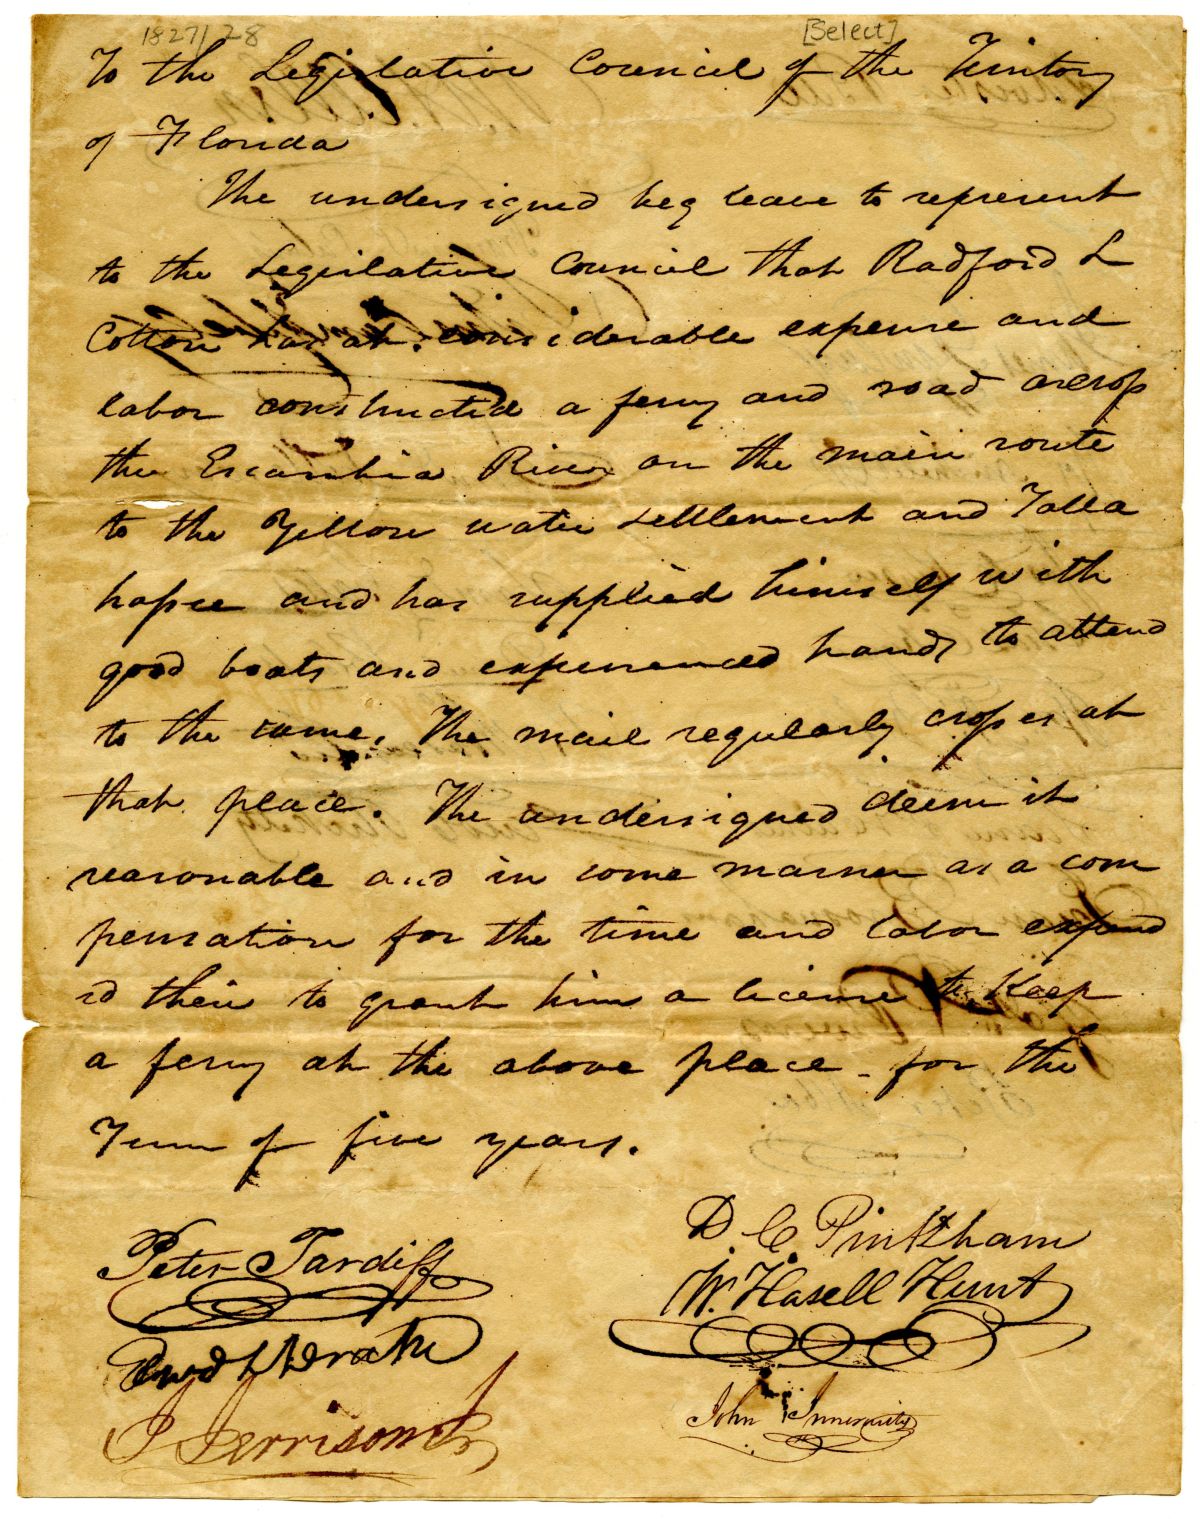 1827/28
[Select]
To the Legislative Council of the Territory
of Florida
The undersigned beg leave to represent
to the Legislative Council that Radford L
Cotton has at considerable expense and
labor constructed a ferry and road across
the Escambia River on the main route
to the Yellow water settlement and Talla
hassee and has supplied himself with
good boats and experienced hands to attend
to the same. The mail regularly crosses at
that place. The undersigned deem it
reasonable and in some manner as a com
pensation for the time and labor expend
ed their to grant him a license to keep
a ferry at the above place - for the
Term of five years.
Peter Tardiff
D. C. Pinkham
W. Hasell Hunt
Drake
J Jerrison Jr
John Innerarity